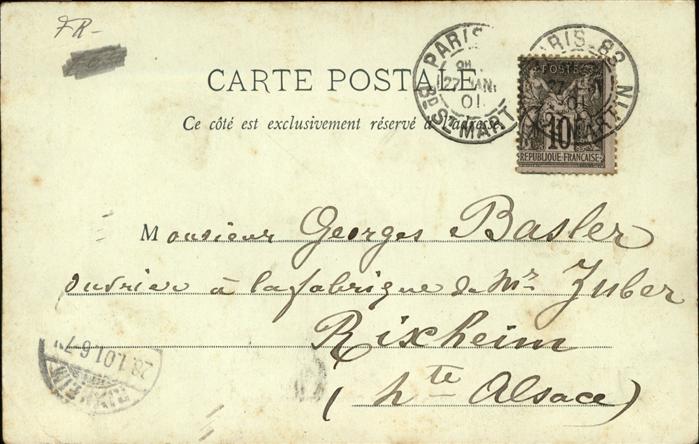 FR-
PARIS
8H
27 JAN.
01
BD ST MART
PARIS-83
01
MARTIN
POSTES
10
RÉPUBLIQUE FRANÇAISE
CARTE POSTALE
Ce côté est exclusivement réservé à l'adresse
Monsieur Georges Basler
ouvrier à la fabrique de Mr Zuber
Rixheim
(hte Alsace)
28.1.01.6-7
RIXHEIM